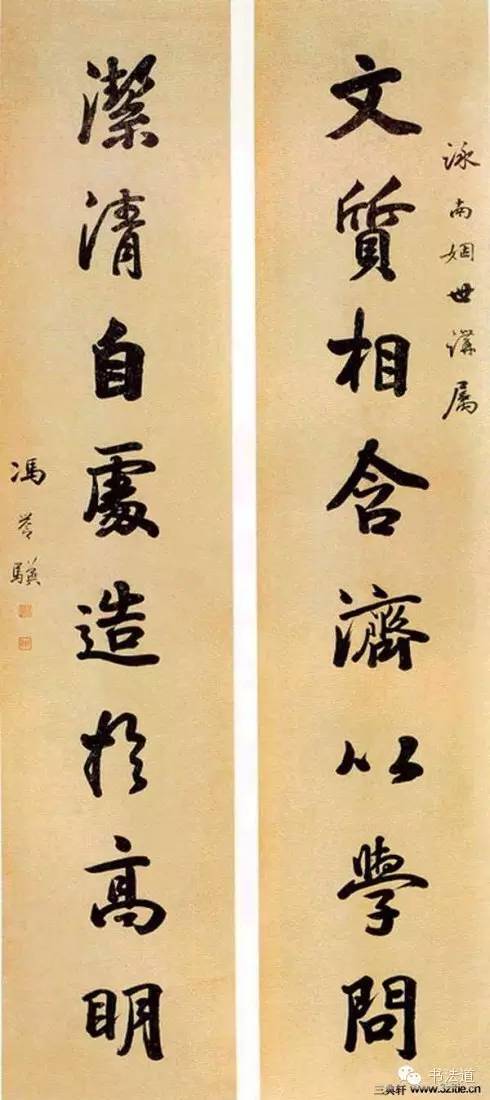 文質相含濟以學問
詠南姻世講屬
潔清自處造於高明
馮譽驥
书法道
三典轩 www.32itie.cn